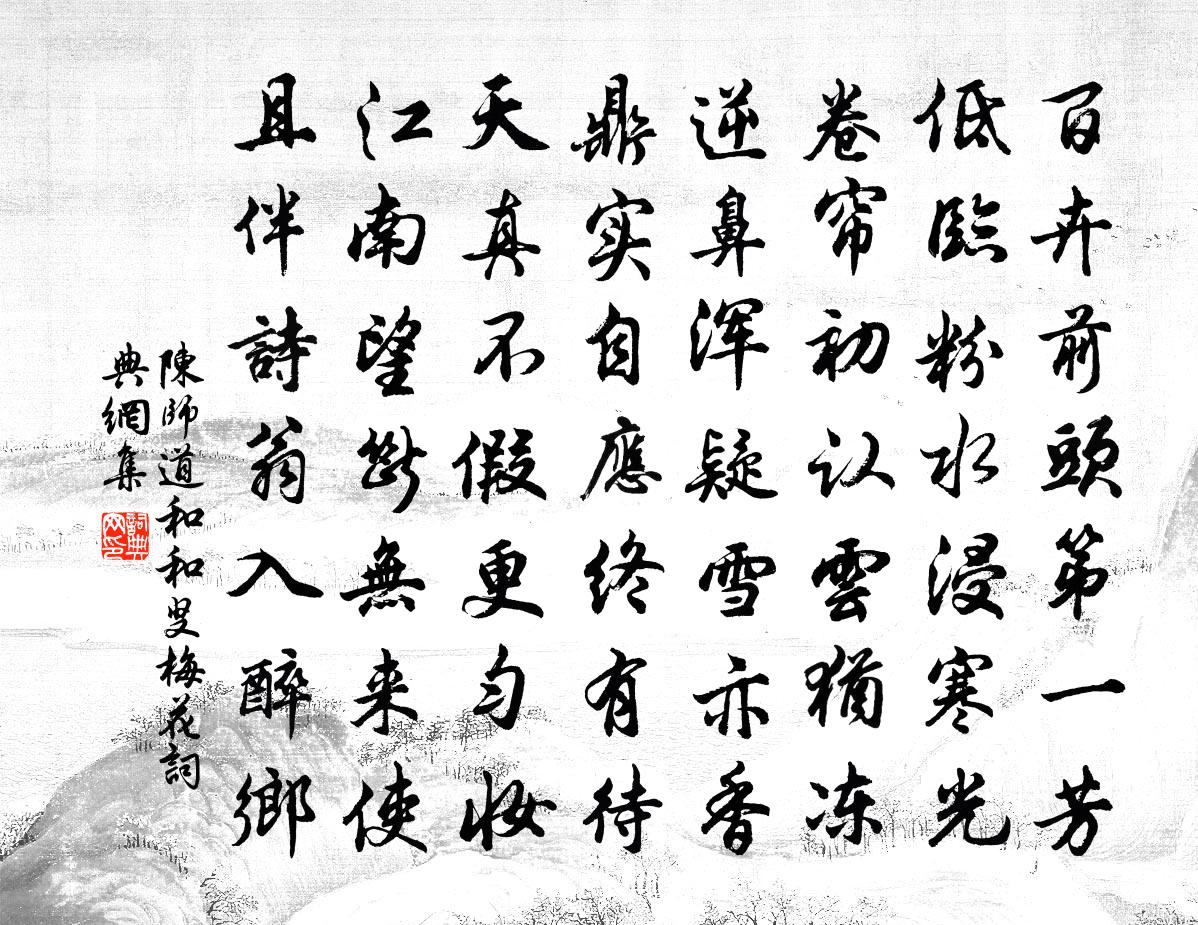 百卉前頭第一芳
低臨粉水浸寒光
卷帘初认雲猶冻
逆鼻渾疑雪亦香
鼎实自應终有待
天真不假更匀妝
江南望斷無来使
且伴詩翁入醉鄉
陳師道和和叟梅花詞
典網集
詞典
网印